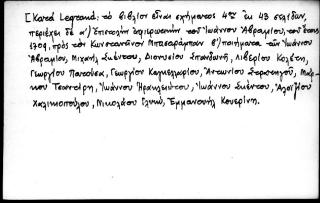 [Κατὰ Legrand: τὸ βιβλίον εἶναι σχήματος 4ου ἐκ 43 σελίδων,
περιέχει δὲ α') ἐπιστολὴν ἀφιερωτικὴν τοῦ Ἰωάννου Ἀβραμίου, τοῦ ἔτους
1708, πρὸς τὸν Κωνσταντῖνον Μπασαράμπαν β') ποιήματα τῶν Ἰωάννου
Ἀβραμίου, Μιχαὴλ Σκένδου, Διονυσίου Σπανδωνῆ, Λιβερίου Κολέτη,
Γεωργίου Πατούσα, Γεωργίου Καγκελλαρίου, Ἀντωνίου Στρατηγοῦ, Μάρ-
κου Τσαντίρη, Ἰωάννου Ἡρακλειώτου, Ἰωάννου Σκένδου, Ἀλοϊζίου
Χαλικιοπούλου, Νικολάου Γλυκύ, Ἐμμανουὴλ Κουερίνη.